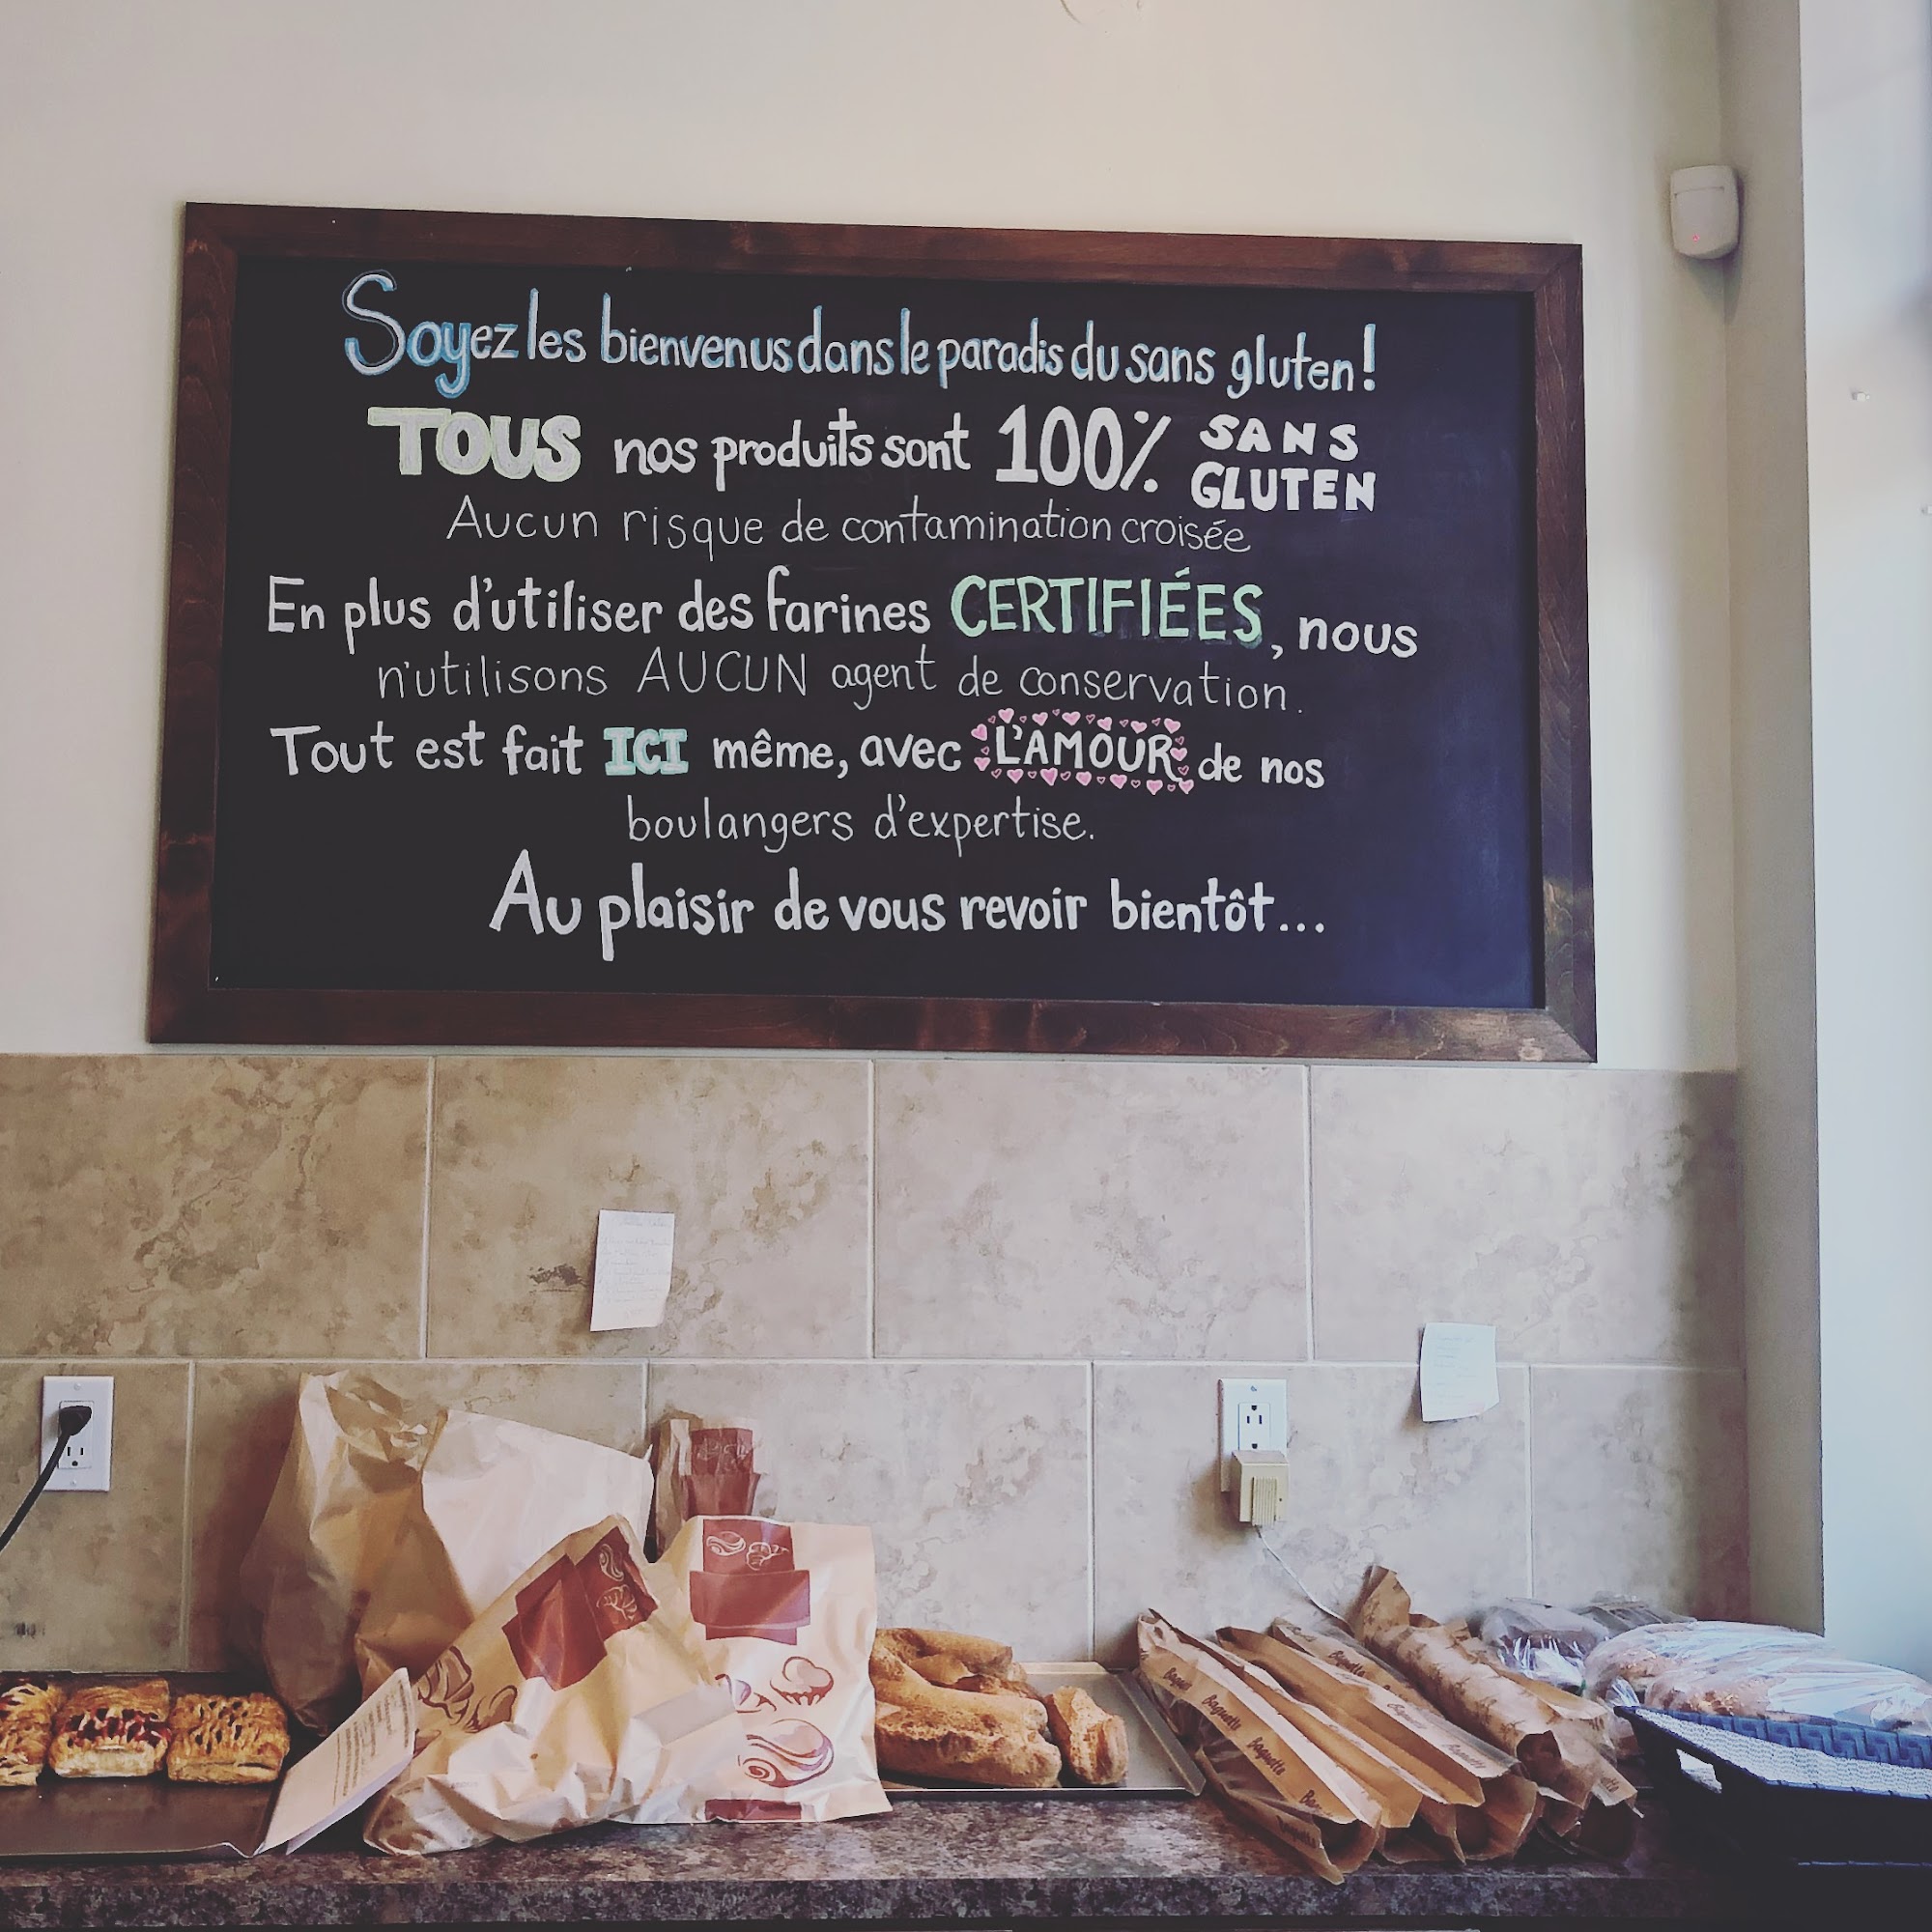 Soyez les bienvenus dans le paradis du sans gluten!
TOUS nos produits sont 100% SANS GLUTEN
Aucun risque de contamination croisée
En plus d'utiliser des farines CERTIFIÉES, nous
n'utilisons AUCUN agent de conservation.
Tout est fait ICI même, avec L'AMOUR de nos
boulangers d'expertise.
Au plaisir de vous revoir bientôt...
Baguette
Baguette
Baguette
Baguette